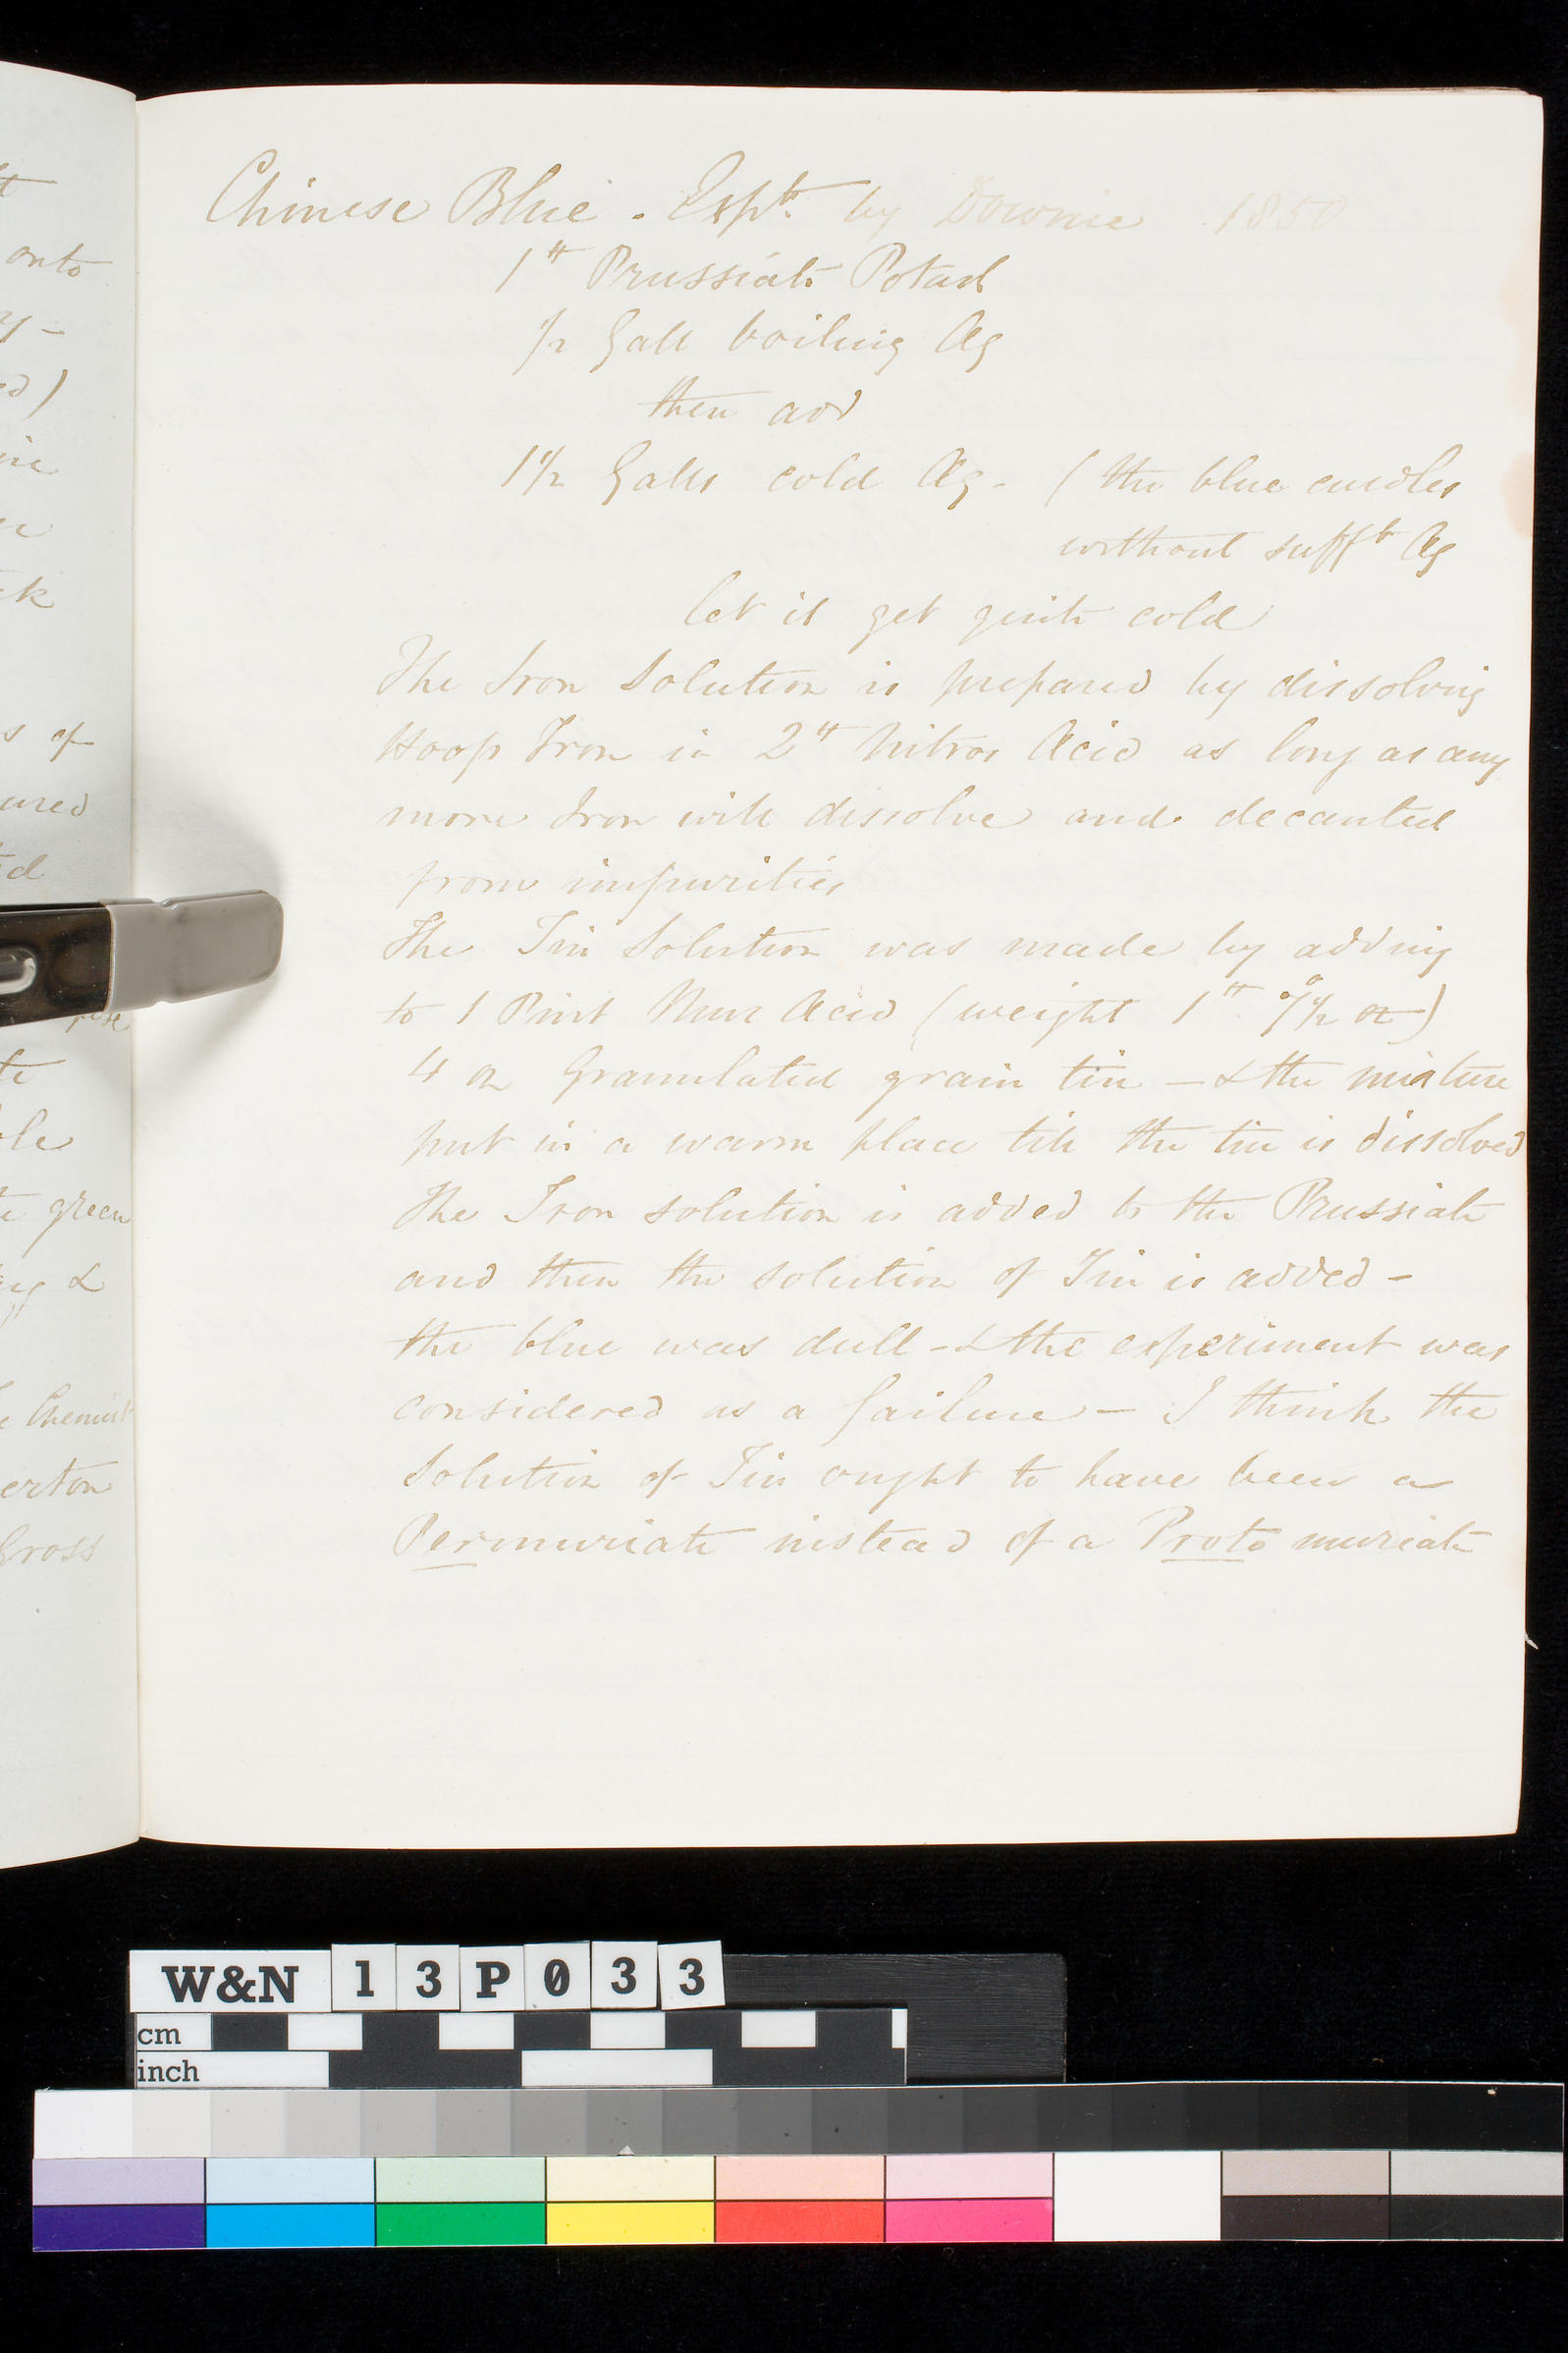 Chinese Blue. Expt. by Downie 1850
1 lb Prussiate Potash
1/2 Gall boiling Aq
then add
1 1/2 Galls cold Aq. (the blue curdles
without sufft Aq
let it get quite cold
The Iron Solution is prepared by dissolving
Hoop Iron in 2 lb Nitros Acid as long as any
more Iron will dissolve and decanted
from impurities
The Tin Solution was made by adding
to 1 Pint Mur Acid (weight 1 lb 7 1/2 oz)
4 oz Granulated grain tin — & the mixture
put in a warm place till the tin is dissolved
The Iron solution is added to the Prussiate
and then the solution of Tin is added -
the blue was dull - & the experiment was
considered as a failure - I think the
Solution of Tin ought to have been a
Permuriate instead of a Proto muriate
onto
s of
ured
green
Chemist
erton
Gross
W&N 13P033
cm
inch